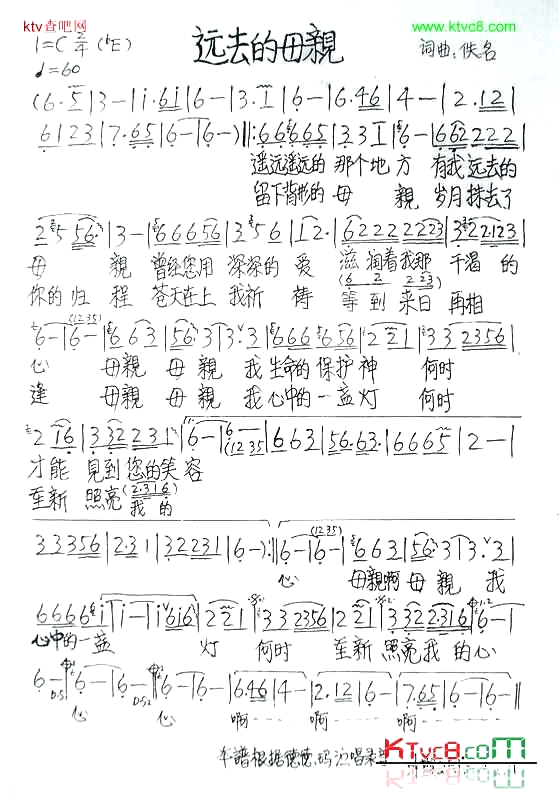 ktv查吧网
www.ktvc8.com
1=C 2/4 (♭E)
♩=60
远去的母親
词曲：佚名
(6·5|3-|i·6i|6-|3·1|6-|6·46|4-|2·12|
6123|7·65|6-|6-)||:66665|331|6-|662222|
遥远遥远的 那个地方 有我远去的
留下背影的 母 親 岁月抹去了
2556|3-|666656|3561|12·|622222223|322·123|
母 親 曾经您用 深深的 爱 滋润着我那 干渴的
你的归 程 苍天在上 我祈 祷 等到来日 再相
6-|6-|663|56·3|3·3|666656|221|332356|
心 母親 母親 我生命的保护神 何时
逢 母親 母親 我心中的一盏灯 何时
216|3322231|6-|6-|663|56·63·|66665|2-|
才能 見到您的笑容
重新 照亮 我的
33356|2·31|32231|6-):||6-|6-|663|56·3|3·3|
心 母親啊 母親 我
6666i|i-|i6i6|221|332356|221|3322·316|6-|
心中的一盏 灯 何时 重新 照亮我 的心
6-|6-|6-|6-|6·46|4-|2·12|6-|7·65|6-|6-||
D.S
D.S2
心 心 啊 啊 啊
KTvc8.com